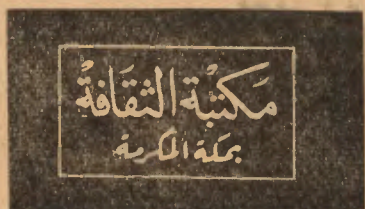 مَكتبْة الثقَافةْ
بمكة المكرمة